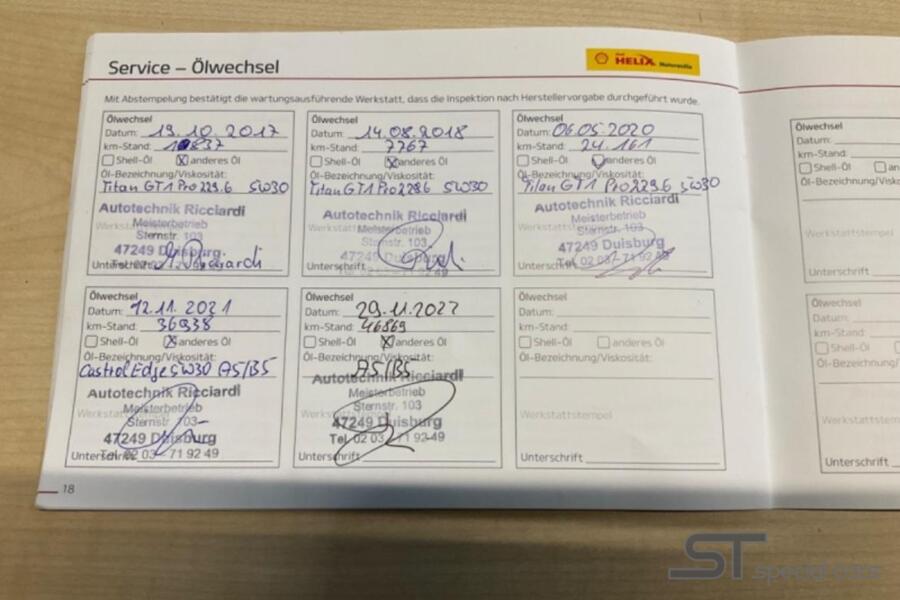 Service – Ölwechsel
HELIX Motorenöle
Mit Abstempelung bestätigt die wartungsausführende Werkstatt, dass die Inspektion nach Herstellervorgabe durchgeführt wurde.
Ölwechsel
Datum: 19.10.2017
km-Stand:
Shell-Öl anderes Öl
Öl-Bezeichnung/Viskosität:
Titan GT1 Pro 229.6 5W30
Autotechnik Ricciardi
Meisterbetrieb
Sternstr. 103
47249 Duisburg
Ölwechsel
Datum: 14.08.2018
km-Stand: 7767
Shell-Öl anderes Öl
Öl-Bezeichnung/Viskosität:
Titan GT1 Pro 229.6 5W30
Autotechnik Ricciardi
Meisterbetrieb
Sternstr. 103
47249 Duisburg
Unterschrift
Ölwechsel
Datum: 06.05.2020
km-Stand: 24.161
Shell-Öl anderes Öl
Öl-Bezeichnung/Viskosität:
Titan GT1 Pro 229.6 5W30
Autotechnik Ricciardi
Meisterbetrieb
Sternstr. 103
47249 Duisburg
Tel. 02 03 - 71 92 49
Unterschrift
Ölwechsel
Datum: 12.11.2021
km-Stand: 36938
Shell-Öl anderes Öl
Öl-Bezeichnung/Viskosität:
Castrol Edge 5W30 A5/B5
Autotechnik Ricciardi
Meisterbetrieb
Sternstr. 103
47249 Duisburg
Unterschrift
Ölwechsel
Datum: 29.11.2022
km-Stand: 46869
Shell-Öl anderes Öl
Öl-Bezeichnung/Viskosität:
A5/B5
Autotechnik Ricciardi
Meisterbetrieb
Sternstr. 103
47249 Duisburg
Tel. 02 03 - 71 92 49
Unterschrift
Ölwechsel
Datum:
km-Stand:
Shell-Öl anderes Öl
Öl-Bezeichnung/Viskosität:
Werkstattstempel
Unterschrift
18
Ölwechsel
Datum:
km-Stand:
Shell-Öl
Öl-Bezeichnung/Visko
Werkstattstempel
Unterschrift
Ölwechsel
Datum:
km-Stand:
Shell-Öl
Öl-Bezeichnung/
Werkstattstem
Unterschrift
ST special cars